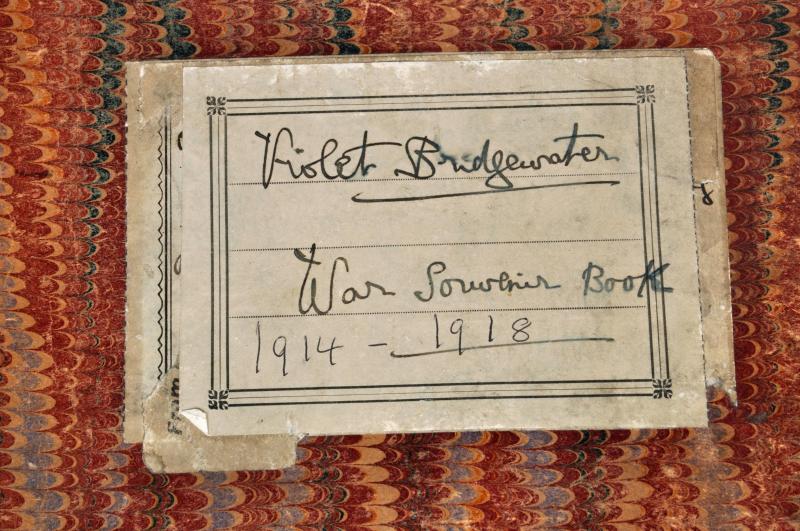 Violet Bridgewater
War Souvenir Book
1914 - 1918
From
8